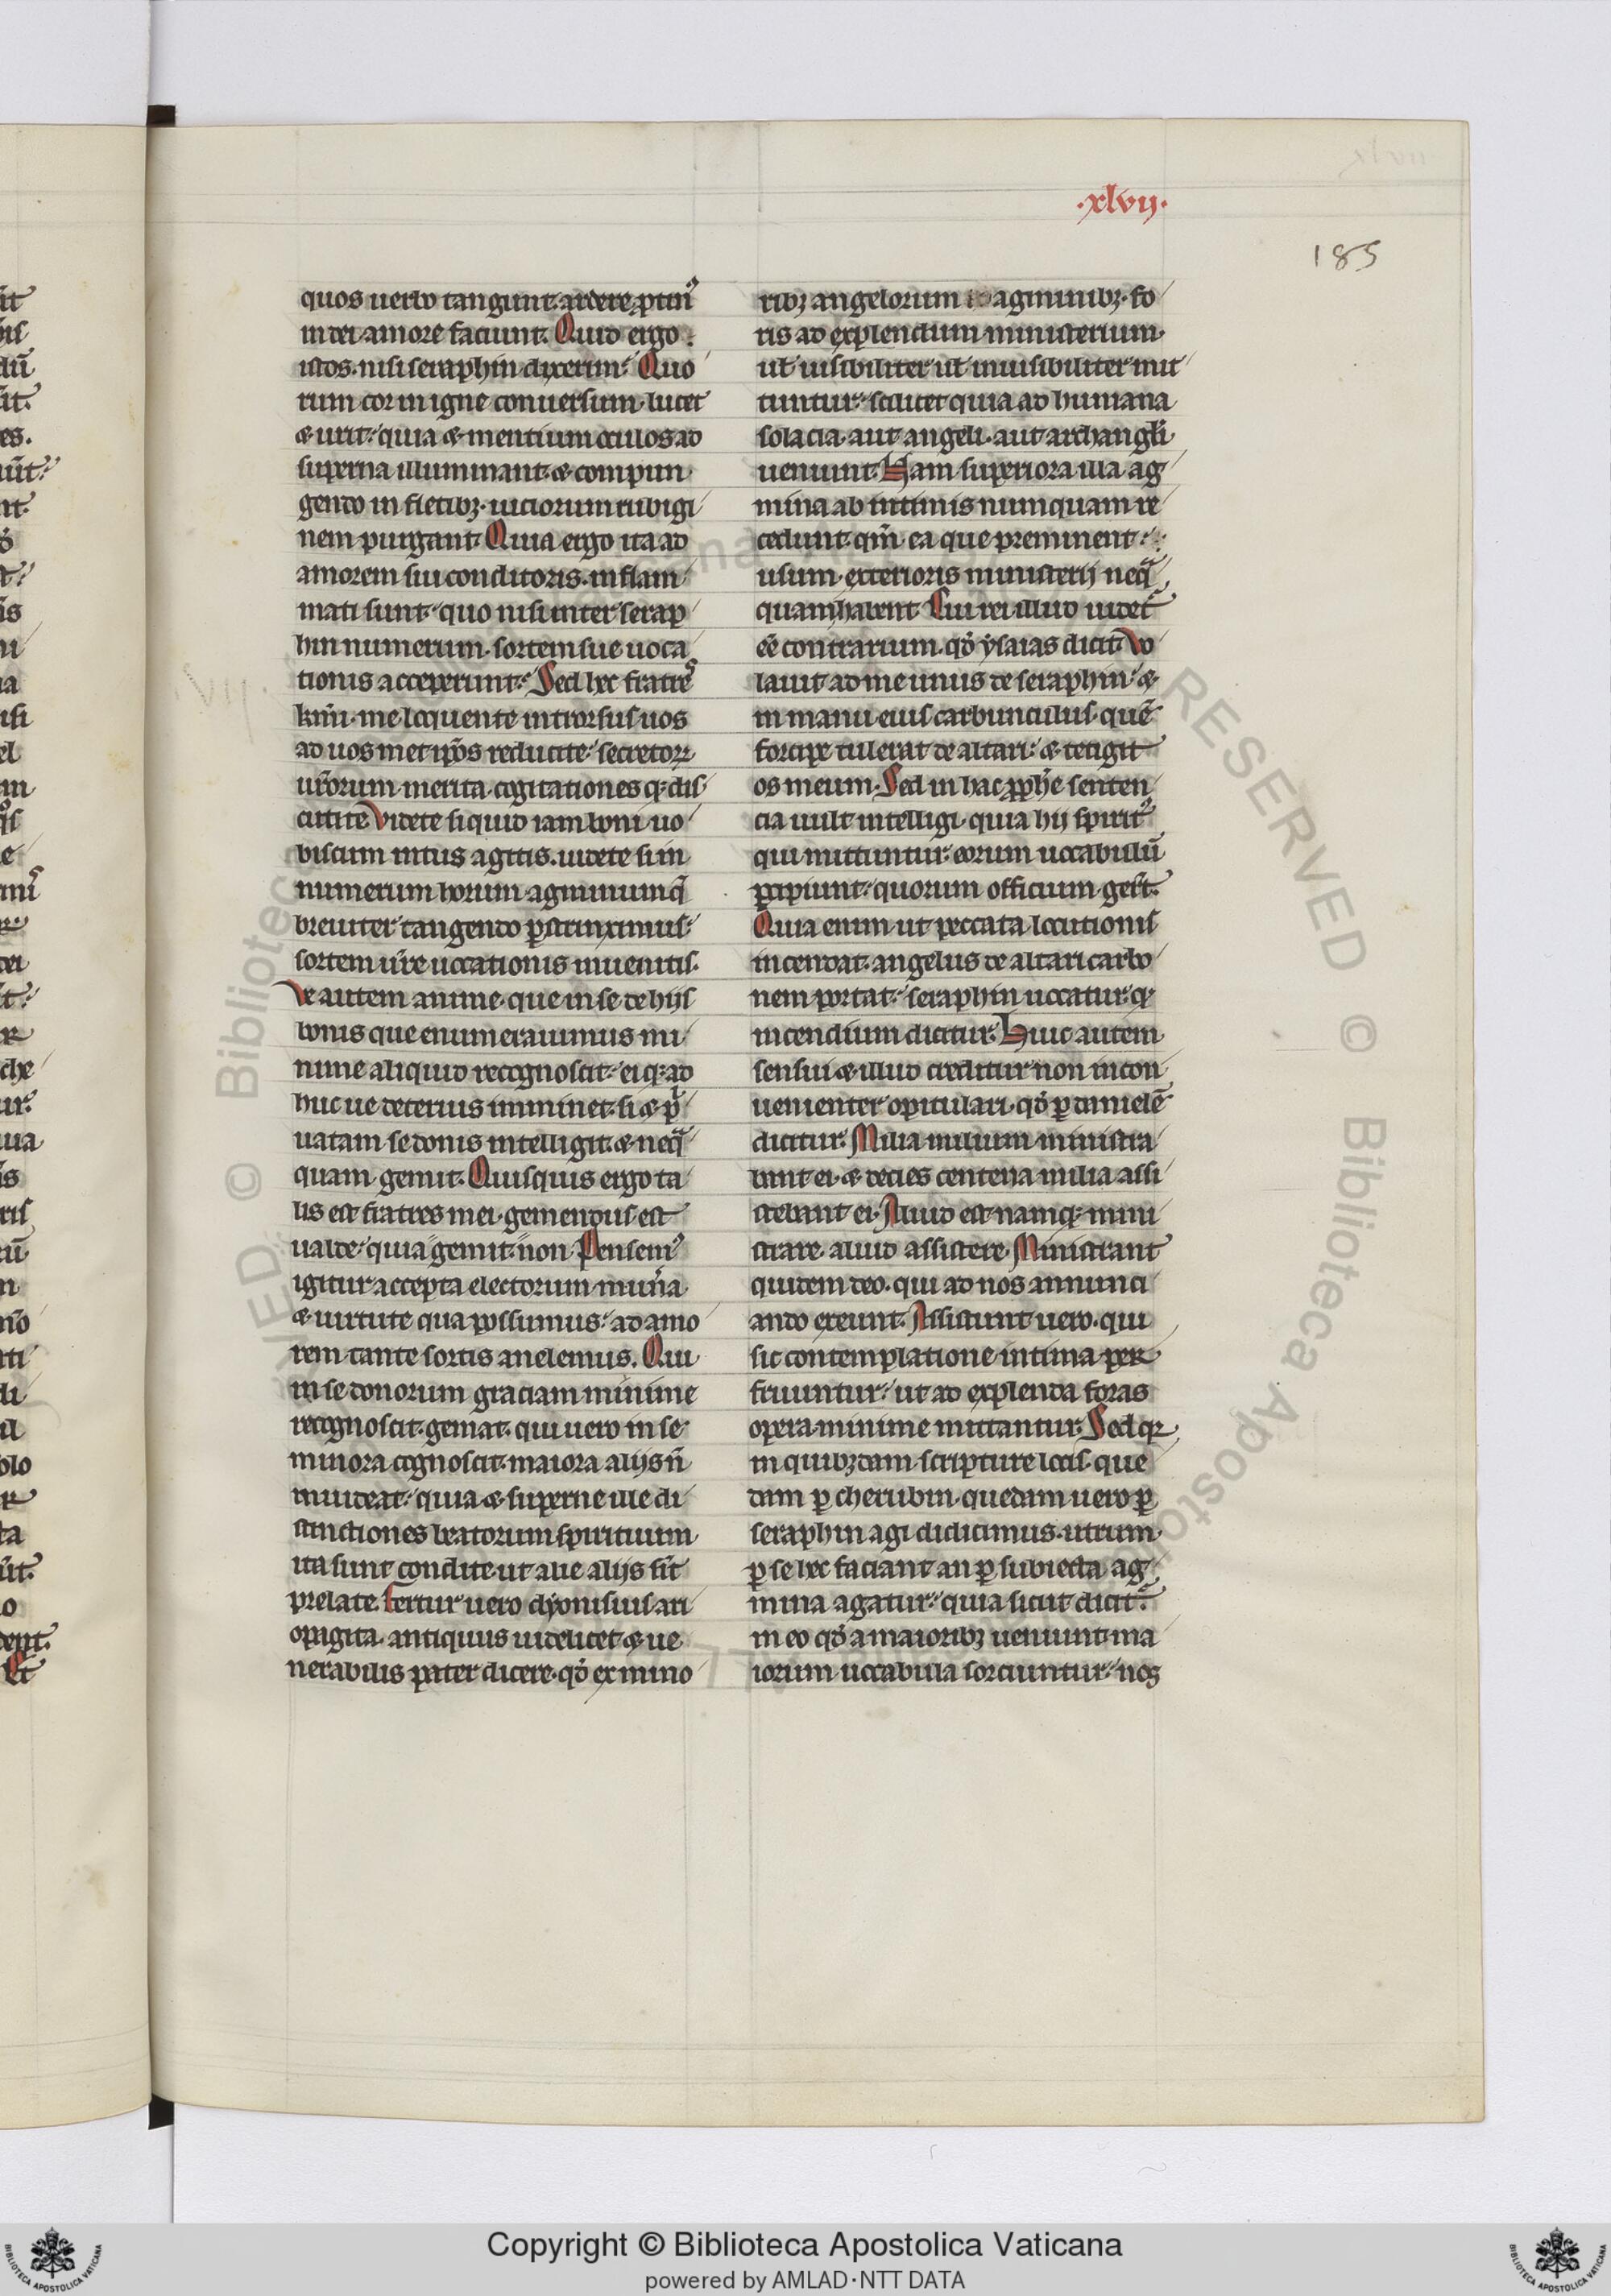 .xlvij.
185
quos uerbo tangunt. ardere ꝓtin᷒
in dei amore faciunt. Quid ergo
istos. nisi seraphin dixerim. Quo
rum cor in igne conuersum. lucet
& urit. quia & mentium oculos ad
superna illuminant. & compun
gendo in fletibꝫ. uiciorum rubigi
nem purgant. Quia ergo ita ad
amorem sui conditoris. inflam
mati sunt. quo nisi inter serap
hin numerum. sortem sue uoca
tionis acceperunt. Sed hec fratre᷒
kmi. me loquente introrsus uos
ad uosmet ip̄os reducite. secretoꝝ
ur̄orum merita. cogitationesqꝫ dis
cutite Videte si quid iam boni uo
biscum intus agitis. uidete si in
numerum horum agminum q̄
breuiter tangendo ꝑstrinximus.
sortem ur̄e uocationis inuenitis.
Ve autem anime. que in se de hijs
bonis que enumerauimus mi
nime aliquid recognoscit. eiqꝫ ad
huc ue deterius imminet. si & p͛
uatam se donis intelligit. & neq̄
quam gemit. Quisquis ergo ta
lis est fratres mei. gemendus est
ualde. quia gemit. non Pensem᷒
igitur accepta electorum mun̄a
& uirtute qua possumus. ad amo
rem tante sortis anelemus. Qui
in se donorum graciam minime
recognoscit. gemat. qui uero in se
minora cognoscit. maiora alijs n̄
inuideat. quia & superne ille di
stinctiones beatorum spirituum
ita sunt condite. ut alie alijs sīt
prelate. Fertur uero dyonisius ari
opagita. antiquus uidelicet & ue
nerabilis pater dicere. qd̄ ex mino
ribꝫ angelorum agminibꝫ. fo
ris ad explendum ministerium.
ul̄ uisibiliter ul̄ inuisibiliter mit
tuntur. scilicet quia ad humana
solacia. aut angeli. aut archangl̄i
ueniunt. Nam superiora illa ag
mina ab intimis numquam re
cedunt. qm̄ ea que preminent.
usum exterioris ministerij neq̄
quam habent. Cui rei illud uidet᷑
eē contrarium. qd̄ ysaias dicit. Vo
lauit ad me unus de seraphin. &
in manu eius carbunculus. quē
forcipe tulerat de altari. & tetigit
os meum. Sed in hac ꝓph̄e senten
cia uult intelligi. quia hij spirit᷒
qui mittuntur. eorum uocabulū
ꝑcipiunt. quorum officium ger̄t.
Quia enim ut peccata locutionis
incendat. angelus de altari carbo
nem portat. seraphin uocatur. qꝫ
incendium dicitur. Huic autem
sensui & illud creditur non incon
uenienter opitulari. qd̄ ꝑ danielē
dicitur. Milia milium ministra
bant ei. & decies centena milia assi
stebant ei. Aliud est namqꝫ mini
strare. aliud assistere. Ministrant
quidem deo. qui ad nos annunci
ando exeunt. Assistunt uero. qui
sic contemplatione intima per
fruuntur. ut ad explenda foras
opera minime mittantur. Sed qꝛ
in quibꝫdam scripture locis. que
dam ꝑ cherubin. quedam uero ꝑ
seraphin agi didicimus. utrum
ꝑ se hec faciant an ꝑ subiecta ag
mina agatur. quia sicut dicit᷑
in eo qd̄ a maioribꝫ ueniunt. ma
iorum uocabula sorciuntur. nos
Copyright © Biblioteca Apostolica Vaticana
powered by AMLAD·NTT DATA